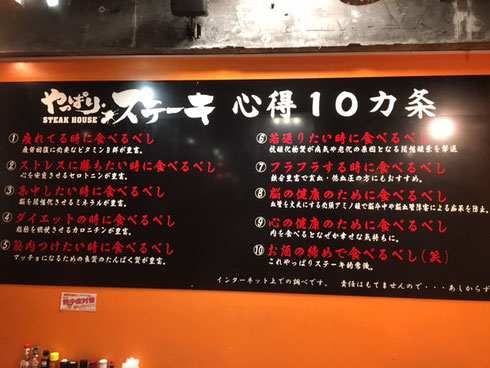 やっぱりステーキ
STEAK HOUSE
心得10カ条
① 疲れてる時に食べるべし
疲労回復にの為なビタミンB群が豊富。
② ストレスに勝ちたい時に食べるべし
心を安定させるセロトニンが豊富。
③ 集中したい時に食べるべし
脳を活性化させるミネラルが豊富。
④ ダイエットの時に食べるべし
脂肪を燃焼させるカロニチンが豊富。
⑤ 筋肉つけたい時に食べるべし
マッチョになるための良質のたんぱく質が豊富。
⑥ 若返りたい時に食べるべし
抗酸化物質が病気や老化の原因となる活性酸素を撃退
⑦ フラフラする時に食べるべし
鉄分豊富で貧血・低血圧の方にもおすすめ。
⑧ 脳の健康のために食べるべし
血管を丈夫にする必須アミノ酸で脳卒中や脳血管障害による痴呆を防止。
⑨ 心の健康のために食べるべし
肉を食べるとなぜか幸せな気持ちに。
⑩ お酒の締めで食べるべし(笑)
これやっぱりステーキ的常識。
インターネット上での調べです。 責任はもてませんので・・・あしからず